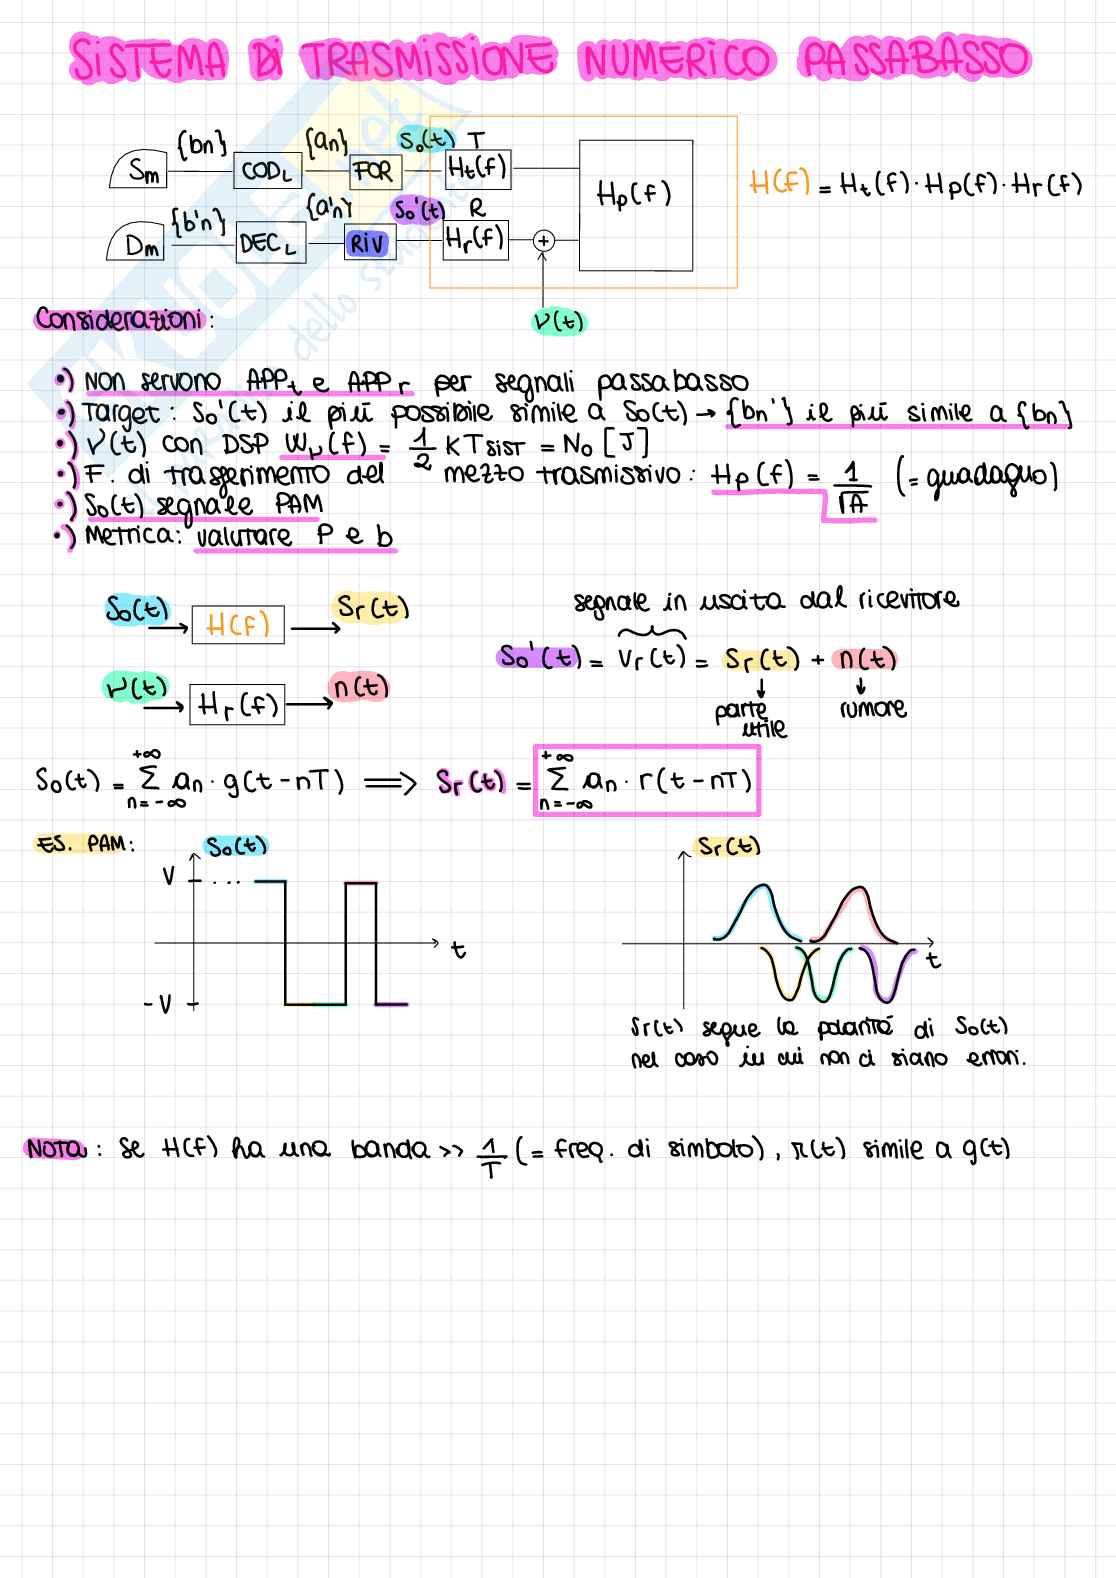 SISTEMA DI TRASMISSIONE NUMERICO PASSABASSO
{bn} {an} So(t) T
Sm CODL FOR Ht(f) Hp(f) H(f) = Ht(f) · Hp(f) · Hr(f)
{b'n} {a'n} So'(t) R
Dm DECL RIV Hr(f) +
ν(t)
Considerazioni:
•) NON servono APPt e APPr per segnali passabasso
•) Target: So'(t) il più possibile simile a So(t) → {bn'} il più simile a {bn}
•) ν(t) con DSP Wν(f) = 1/2 KTSIST = No [J]
•) F. di trasferimento del mezzo trasmissivo: Hp(f) = 1/√A (= guadagno)
•) So(t) segnale PAM
•) Metrica: valutare P e b
So(t) → H(f) → Sr(t)
segnale in uscita dal ricevitore
So'(t) = vr(t) = Sr(t) + n(t)
ν(t) → Hr(f) → n(t)
parte utile
rumore
So(t) = Σ n=-∞ +∞ an · g(t-nT) ⟹ Sr(t) = Σ n=-∞ +∞ an · r(t-nT)
ES. PAM:
So(t)
V ...
t
-V
Sr(t)
t
Sr(t) segue la polarità di So(t)
nel caso in cui non ci siano errori.
NOTA: Se H(f) ha una banda >> 1/T (= freq. di simbolo), r(t) simile a g(t)